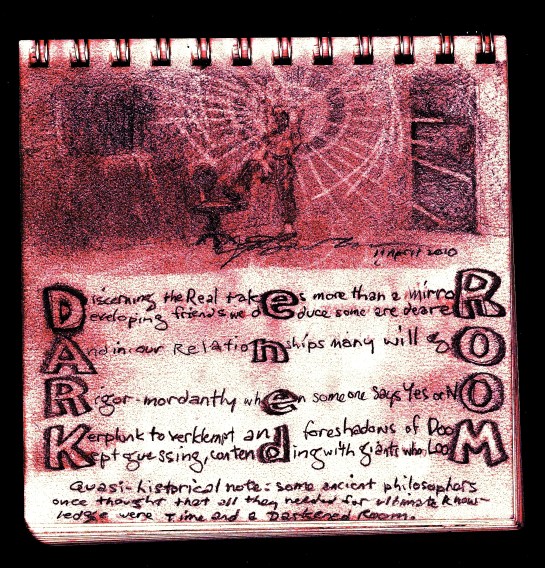 11 April 2010
Discerning the Real takes more than a mirroR
Developing friends we deduce some are deareR
And in our Relationships many will gO
Rigor-mordantly when someone says Yes or NO
Kerplunk to verklempt and foreshadows of DooM
Kept guessing, contending with giants who looM
Quasi-historical note: some ancient philosophers
once thought that all they needed for ultimate know-
ledge were Time and a Darkened Room.